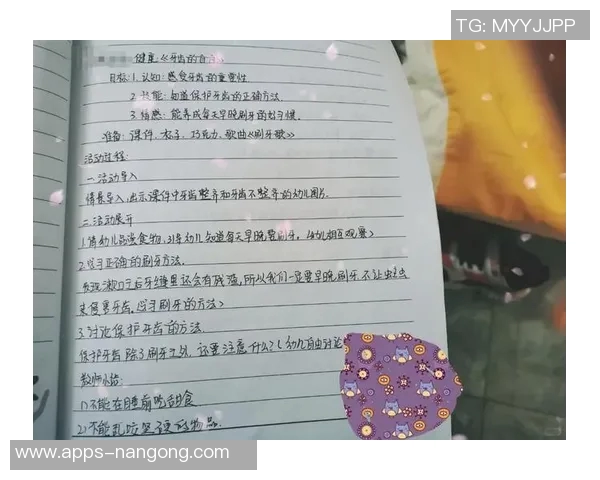 TG: MYYJJPP
健康《牙齿的自
目标:1.认知:感受牙齿的重要性.
2.技能:知道保护牙齿的正确方法.
3.情感:能养成每天早晚刷牙的好习惯.
准备:课件、杯子、巧克力、歌曲《刷牙歌》
活动过程:
一.活动导入
情景导入,出示课件中牙齿整齐和牙齿不整齐的幼儿图片.
二.活动展开
1.请幼儿品尝食物,引导幼儿知道每天早晚要刷牙.(幼儿相互观察)
2.学习正确的刷牙方法.
发现漱口了后牙缝里还会有残渣,所以我们一定要早晚刷牙,不让虫虫
来侵害牙齿.(学习刷牙的方法)
3.讨论保护牙齿的方法
保护牙齿除了刷牙之外,还要注意什么?(幼儿自由讨论
教师小结:
1)不能在睡前吃甜食
2)不能乱咬坚硬的物品.
www.apps-nangong.com